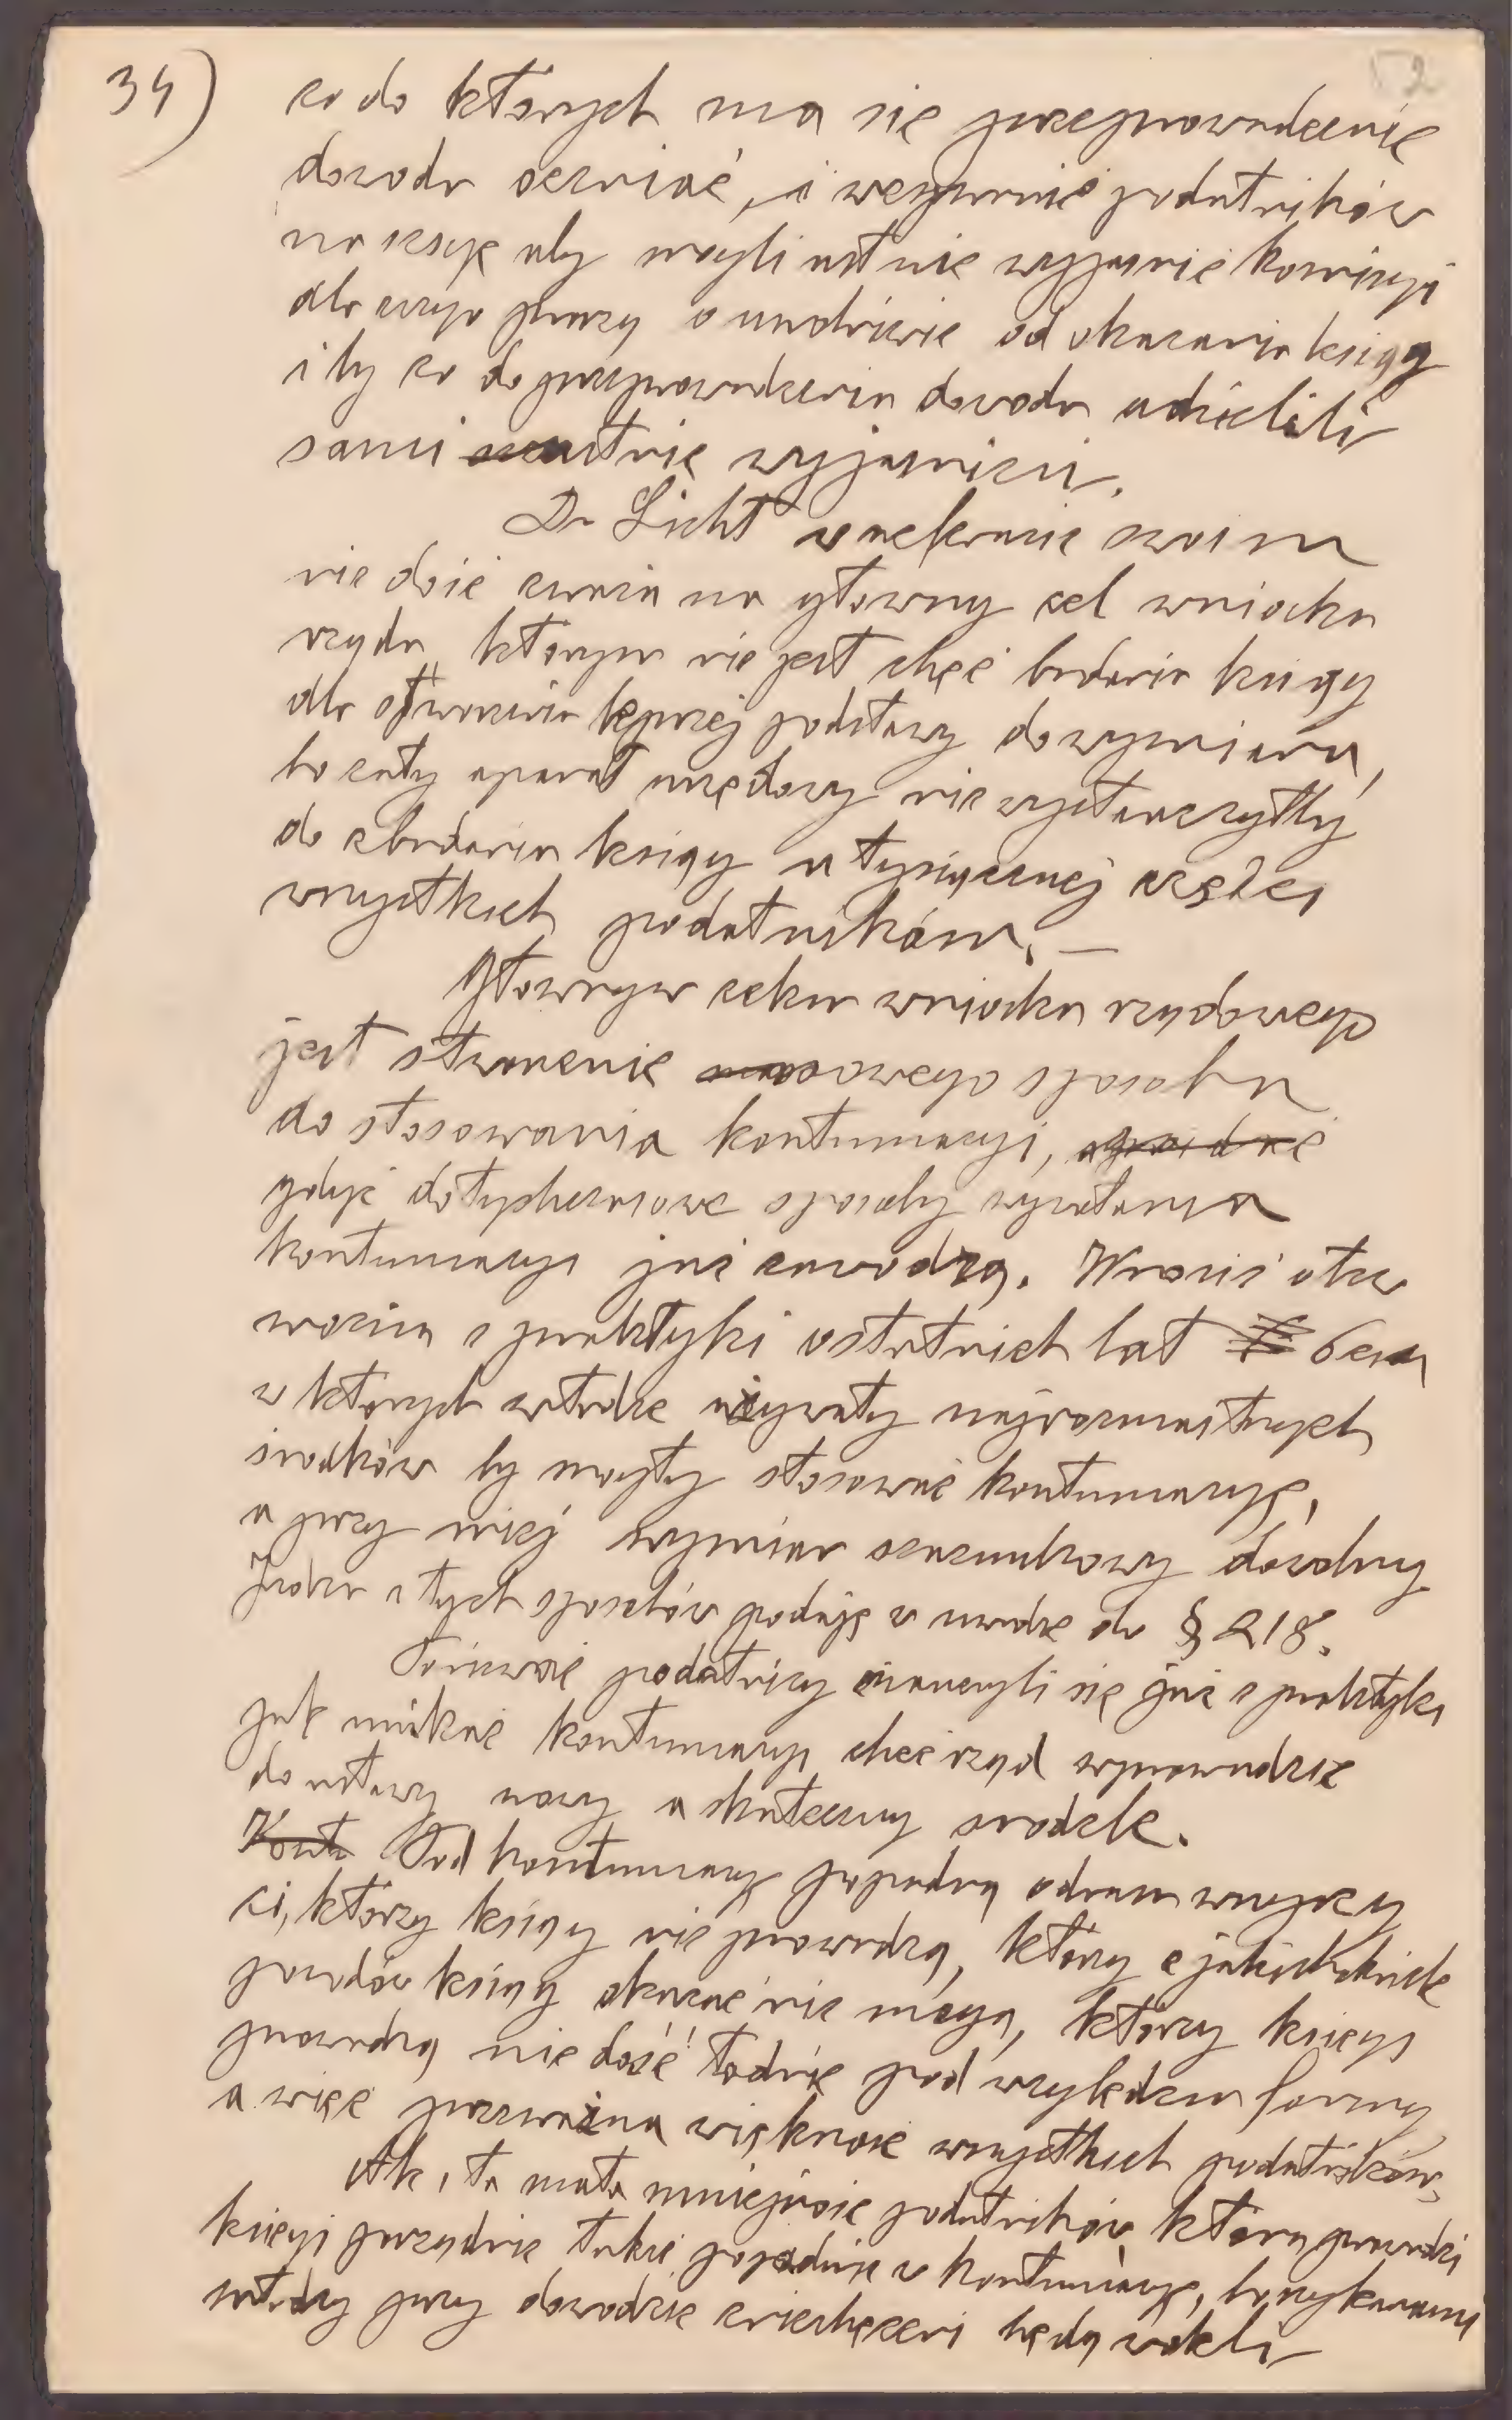 34)
co do których ma się przeprowadzenie
dowodu oceniać, i wezwanie podatników
na sesję aby mogli ustnie wyjaśnić komisyi
dla czego proszą o uwolnienie od okazania ksiąg
i by co do przeprowadzenia dowodu udzielili
sami ustnie wyjaśnień.
Dr Licht w referacie swoim
nie dość zważa na główny cel wniosku
rządu, którym nie jest chęć badania ksiąg
dla stworzenia lepszej podstawy do wymiaru,
bo cały aparat urzędowy nie wystarczyłby
do zbadania ksiąg u tysiącznej części
wszystkich podatników. —
Głównym celem wniosku rządowego
jest stworzenie nowego sposobu
do stosowania kontumacyi,
gdyż dotychczasowe sposoby wywołania
kontumacyi już zawodzą. Wnosić to
można z praktyki ostatnich lat
w których władze używały najrozmaitszych
środków by mogły stosować kontumacyę,
a przy niej wymiar szacunkowy dowolny
Jeden z tych sposobów podaję w uwadze do § 218.
Ponieważ podatnicy nauczyli się już z praktyki
jak unikać kontumacyi chce rząd wprowadzić
do ustawy nowy a skuteczny środek.
Pod kontumacyę popadną odrazu wszyscy
ci, którzy ksiąg nie prowadzą, którzy z jakichkolwiek
powodów ksiąg okazać nie mogą, którzy księgi
prowadzą nie dość ładnie pod względem formy,
a więc przeważna większość wszystkich podatników.
Ale i ta mała mniejszość podatników, która prowadzi
księgi porządnie także popadnie w kontumacyę, bo szykanami
władzy przy dowodzie zniechęceni będą woleli